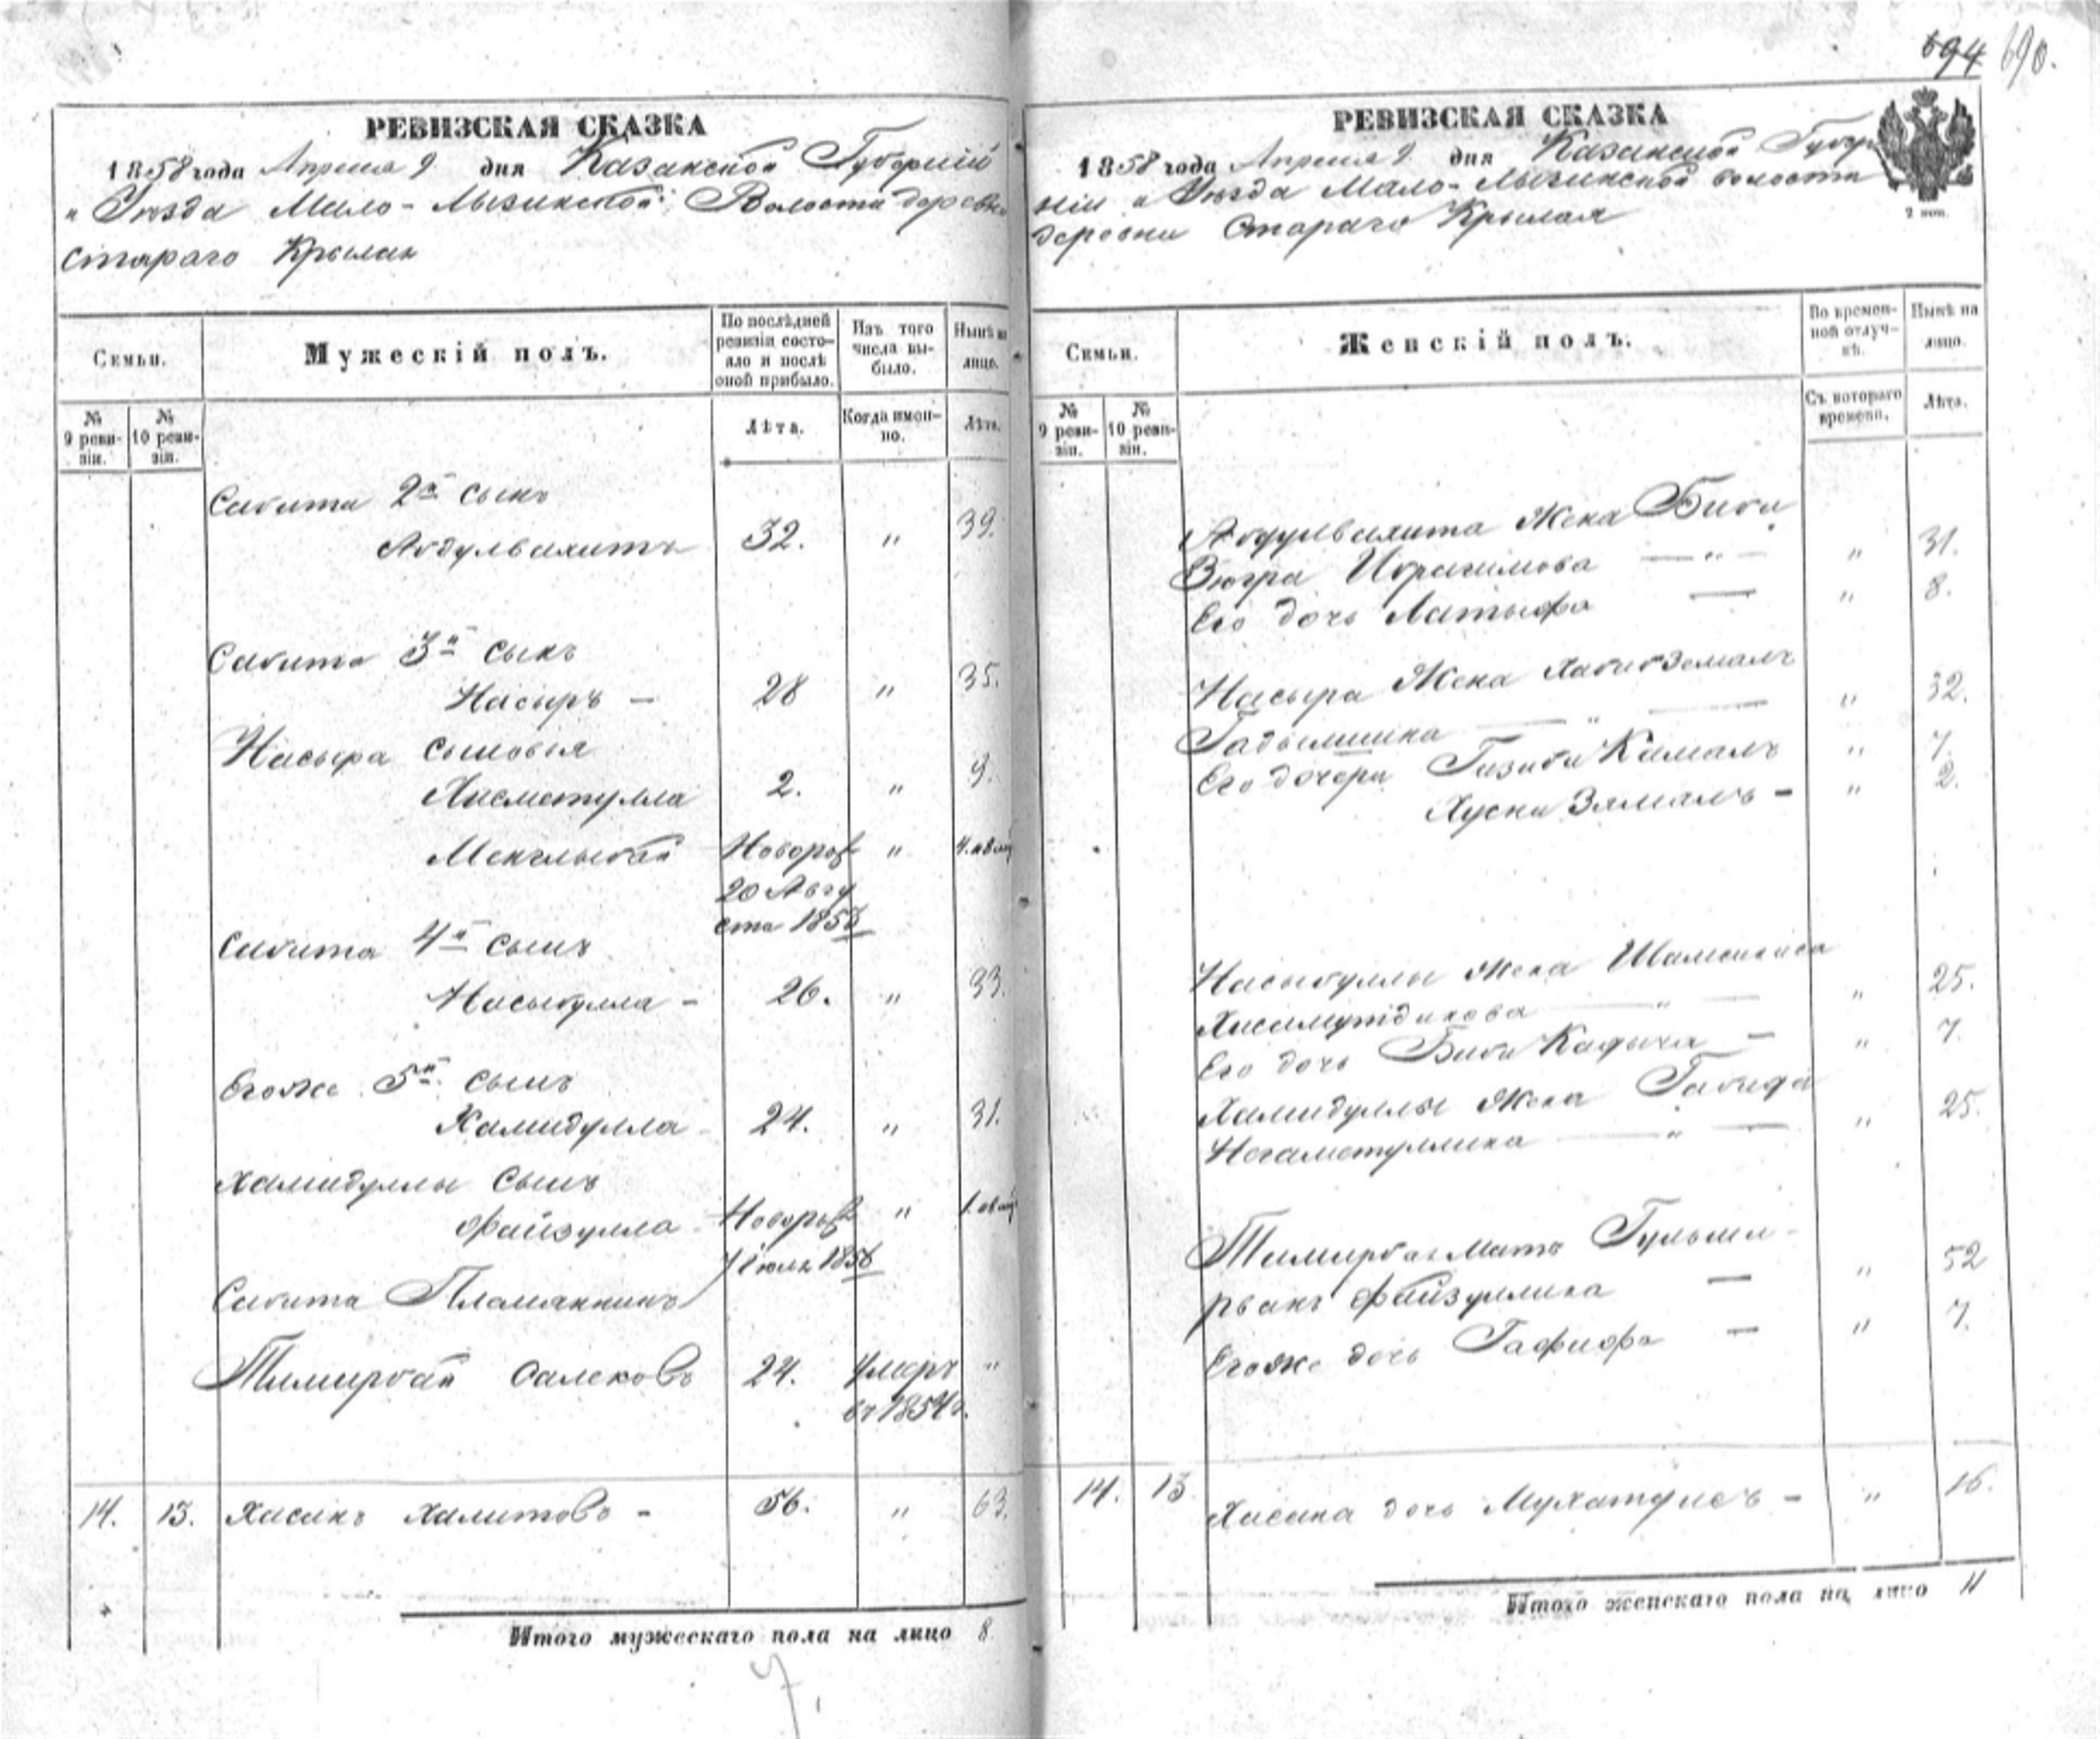 694 690.
РЕВИЗСКАЯ СКАЗКА
1858 года Апреля 9 дня Казанской Губерніи
" Уѣзда Мало-Лызинской Волости деревни
Стараго Крылая
Семьи.
Мужескій полъ.
По послѣдней ревизіи состояло и послѣ оной прибыло.
Изъ того числа выбыло.
Нынѣ на лицо.
№ 9 ревизіи.
№ 10 ревизіи.
Лѣта.
Когда именно.
Лѣта.
Сабита 2й сынъ
Абдулвахитъ 32. " 39.
Сабита 3й сынъ
Насыръ — 28 " 35.
Насыра сыновья
Хисметулла 2. " 9.
Менглыбай Новорож " 4. мѣсяц
20 Авгу
ста 1857
Сабита 4й сынъ
Насыбулла - 26. " 33.
Егоже 5й сынъ
Хамидулла 24. " 31.
Хамидуллы сынъ
Файзулла Новорож "
7 Іюля 1856
Сабита Племянникъ
Тимирбай Салековъ 24. Умеръ "
въ 1854 г.
14. 13. Хасанъ Халитовъ - 56. " 63.
Итого мужескаго пола на лицо 8
7.
РЕВИЗСКАЯ СКАЗКА
1858 года Апреля 9 дня Казанской Губер
ніи " Уѣзда Мало-Лызинской волости
деревни Стараго Крылая
2 коп.
Семьи.
Женскій полъ.
Во временной отлучкѣ.
Нынѣ на лицо.
№ 9 ревизіи.
№ 10 ревизіи.
Съ котораго времени.
Лѣта.
Абдулвахита Жена Биби
Зюгра Ибрагимова — " — " 31.
Его дочь Латыфа — " 8.
Насыра Жена Хабибземалъ
Гадылшина — " — " 32.
Его дочери Газиби Камалъ " 7.
Хусни Замалъ - " 2.
Насыбуллы жена Шамсиниса
Хисамутдинова — " — " 25.
Его дочь Биби Кафыча — " 7.
Хамидуллы жена Габида
Негаметуллина — " — " 25.
Тимирбая Мать Гульши-
рванъ Файзуллина — " 52
Егоже дочь Гафифа — " 7.
14. 13 Хасана дочь - " 16.
Итого женскаго пола на лицо 11